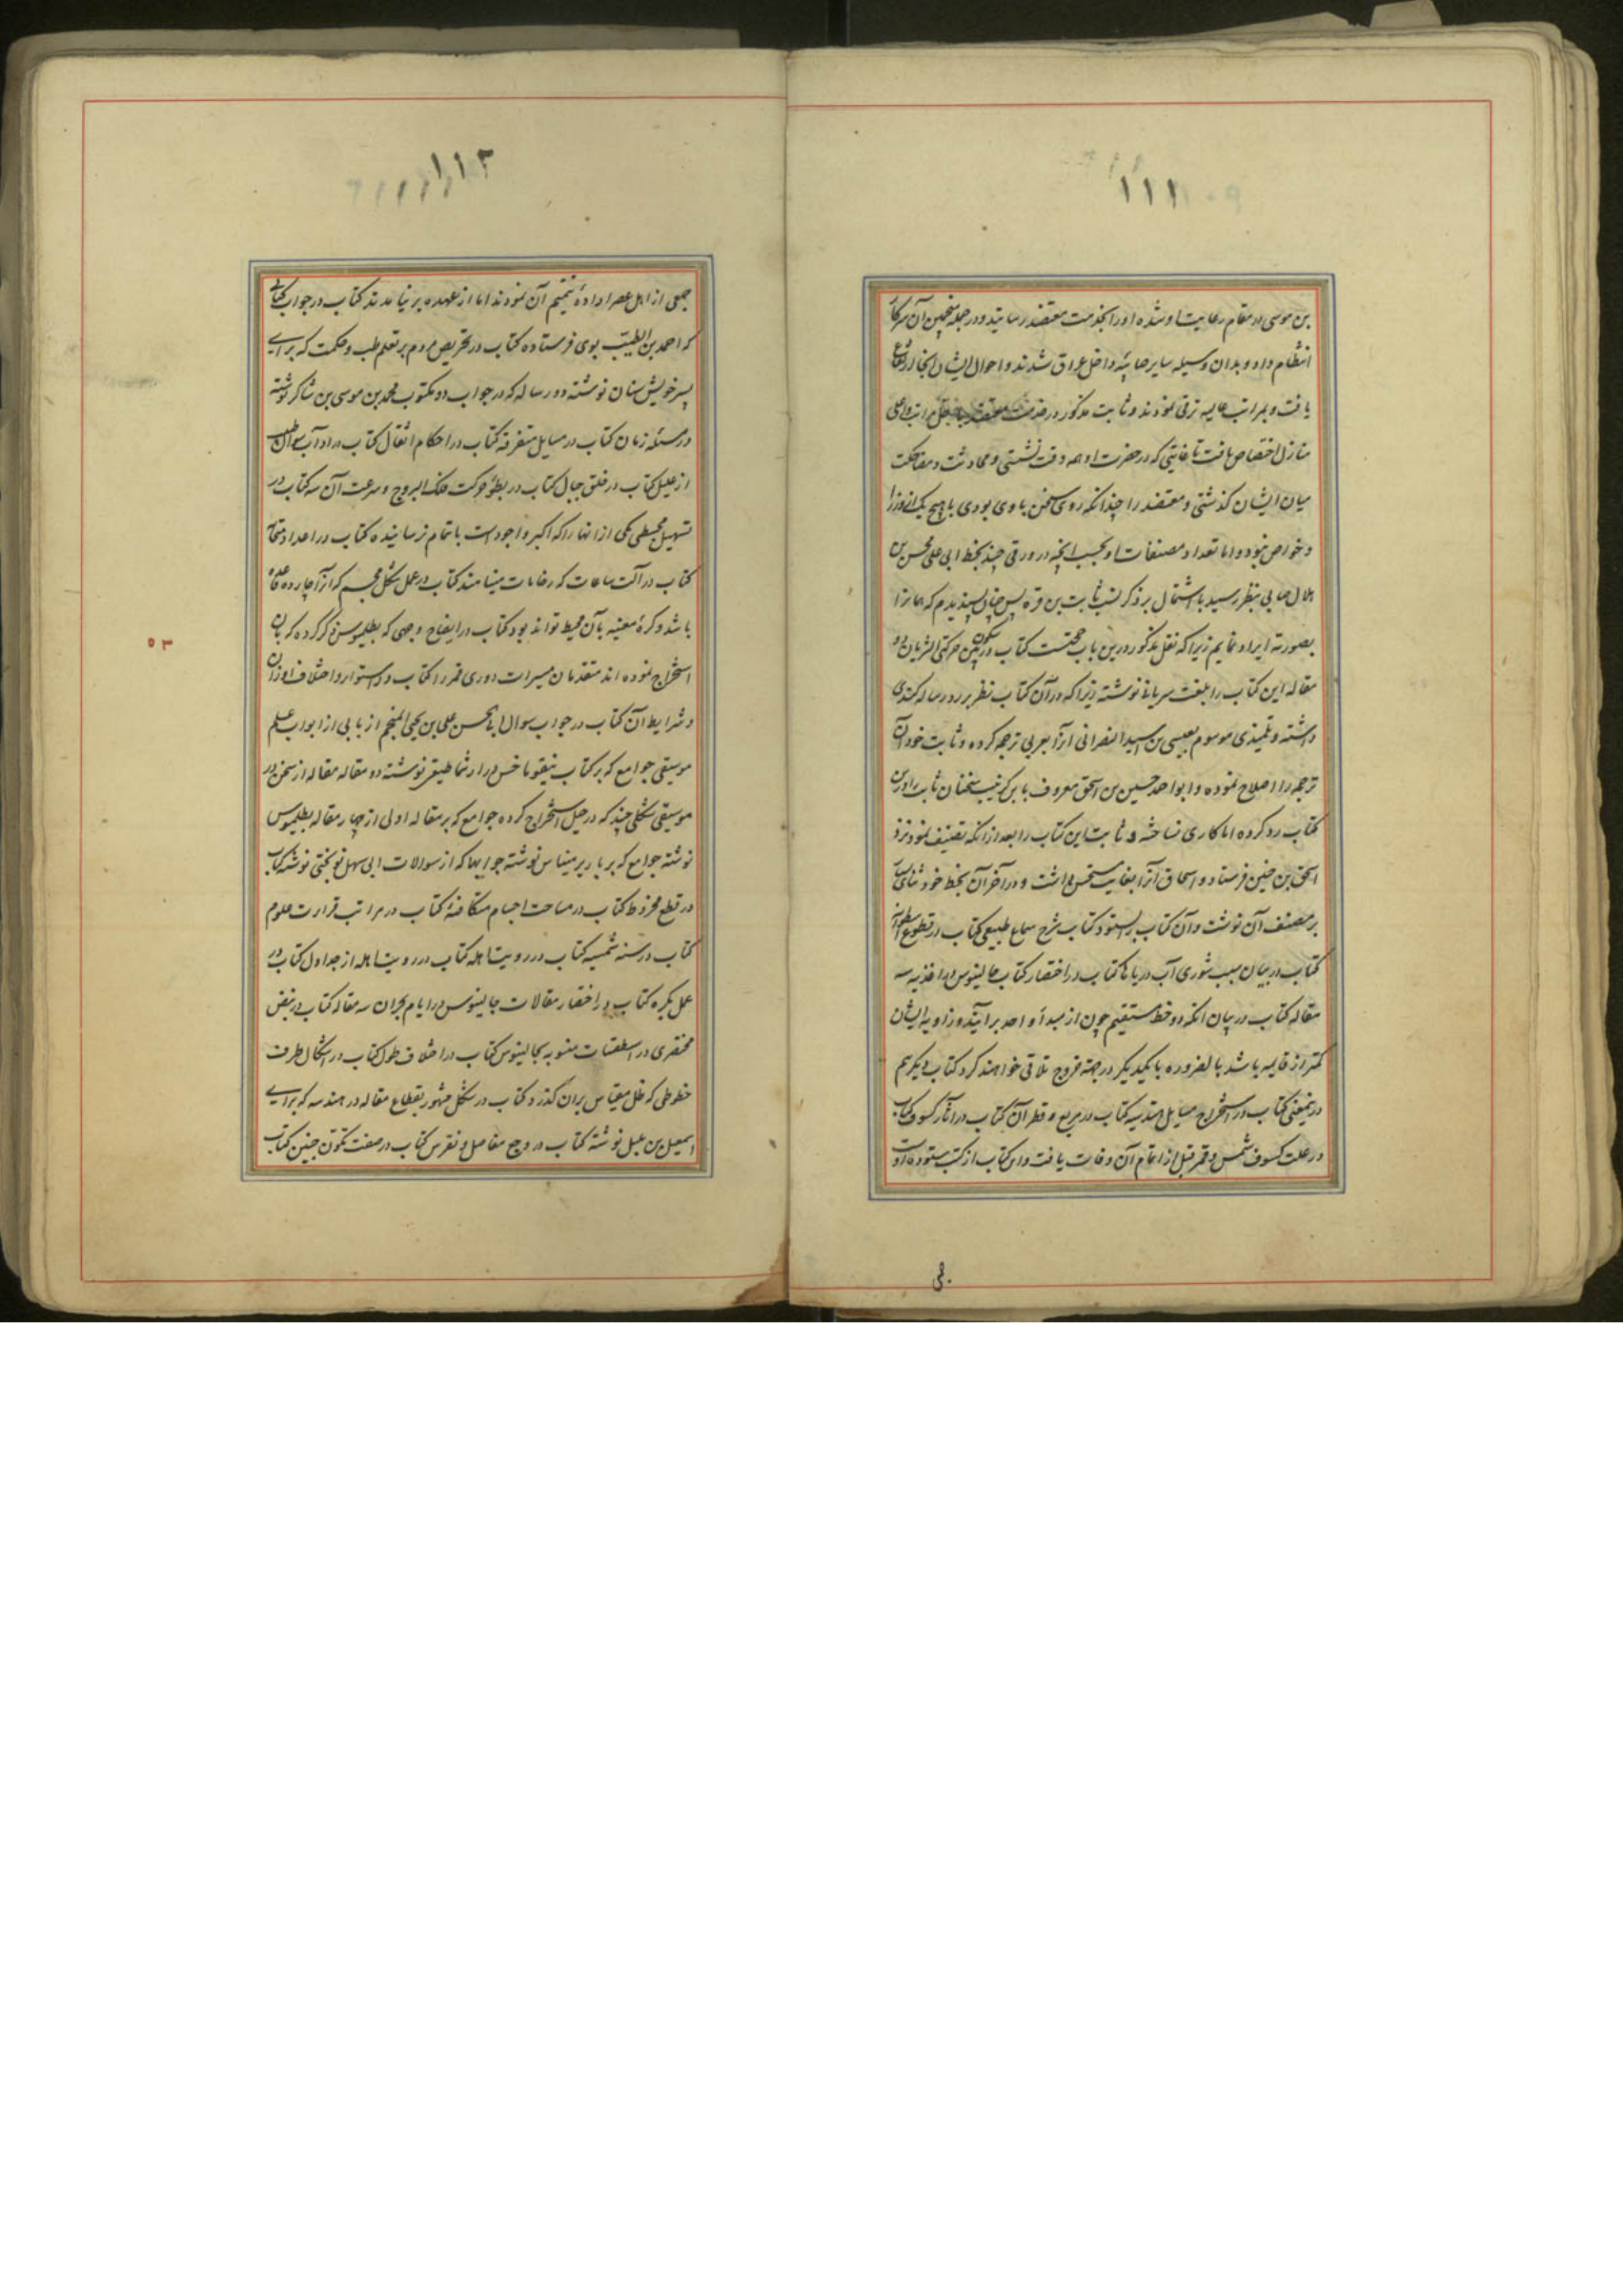 ۱۱۱
بن موسی در مقام رعایت او شده او را بخدمت معتضد رسانید و در جمله منجمین آن سرکار
انتظام داد و بدان وسیله سایر صابئه داخل عراق شدند و احوال ایشان آنجا ارتفاع
یافت و بمراتب عالیه ترقی نمودند و ثابت مذکور در خدمت معتضد باجل مراتب و اعلی
منازل اختصاص یافت تا غایتی که در حضرت او همه وقت نشستی و محادثت و مضاحکت
میان ایشان گذشتی و معتضد را چندانکه روی سخن با وی بودی با هیچ یک از وزرا
و خواص نبود و اما تعداد مصنفات او بحسب آنچه در ورقی چند بخط ابی علی محسن بن
هلال صابی بنظر رسید با اشتمال بر ذکر نسب ثابت بن قره پس چنان پسندیدم که همانرا
بصورته ایراد نمایم زیرا که نقل مذکور درین باب حجتست کتاب در سکون بین حرکتی الشریان دو
مقاله این کتاب را بلغت سریانی نوشته زیرا که در آن کتاب نظر بر رد رساله کندی
داشته و تلمیذی موسوم بعیسی بن اسید النصرانی آنرا بعربی ترجمه کرده و ثابت خود آن
ترجمه را اصلاح نموده و ابو احمد حسین بن اسحق معروف بابن کرنیب سخنان ثابت را درین
کتاب رد کرده اما کاری نساخته و ثابت این کتاب را بعد از آنکه تصنیف نمود نزد
اسحق بن حنین فرستاد و اسحاق آنرا بغایت مستحسن داشت و در آخر آن بخط خود ثنای بسیار
بر مصنف آن نوشت و آن کتاب را ستود کتاب شرح سماع طبیعی کتاب در قطوع اسطوانه
کتاب در بیان سبب شوری آب دریاها کتاب در اختصار کتاب جالینوس در اغذیه سه
مقاله کتاب در بیان آنکه دو خط مستقیم چون از مبدأ واحد برآیند و زاویه ایشان
کمتر از قایمه باشد بالضروره با یکدیگر در جهة خروج تلاقی خواهند کرد کتاب دیگر هم
درینمعنی کتاب در استخراج مسایل هندسیه کتاب در مربع و قطر آن کتاب در آثار کسوف کتاب
در علت کسوف شمس و قمر قبل از اتمام آن وفات یافت و این کتاب از کتب ستوده اوست
۱۱۲
جمعی از اهل عصر ارادهٔ تتمیم آن نمودند اما از عهده بر نیامدند کتاب در جواب کتابی
که احمد بن الطیب بوی فرستاده کتاب در تحریص مردم بر تعلم طب و حکمت که برای
پسر خویش سنان نوشته دو رساله که در جواب دو مکتوب محمد بن موسی بن شاکر نوشته
در مسئله زمان کتاب در مسایل متفرقه کتاب در احکام اثقال کتاب در آداب سوال طبیب
از علیل کتاب در خلق جبال کتاب در بطؤ حرکت فلک البروج و سرعت آن سه کتاب در
تسهیل مجسطی یکی از آنها را که اکبر و اجود است باتمام نرسانیده کتاب در اعداد متحابه
کتاب در آلت ساعات که رخامات مینامند کتاب در عمل شکل مجسم که آنرا چارده قاعده
باشد و کرهٔ معینه بآن محیط تواند بود کتاب در ایضاح وجهی که بطلمیوس ذکر کرده که بآن
استخراج نموده اند متقدمان مسیرات دوری قمر را کتاب در استوار و اختلاف اوزان
و شرایط آن کتاب در جواب سوال ابی الحسن علی بن یحیی المنجم از بابی از ابواب علم
موسیقی جوامع که بر کتاب نیقوماخس در ارثماطیقی نوشته دو مقاله مقاله از سخن در
موسیقی شکلی چند که در حیل استخراج کرده جوامع که بر مقاله اولی از چهار مقاله بطلمیوس
نوشته جوامع که بر باریرمیناس نوشته جوابها که از سوالات ابی سهل نوبختی نوشته کتاب
در قطع مخروط کتاب در مساحت اجسام متکافئهٔ کتاب در مراتب قرارت علوم
کتاب در سنه شمسیه کتاب در رویت اهله کتاب در رویت اهله از جداول کتاب در
عمل بکره کتاب در اختصار مقالات جالینوس در ایام بحران سه مقاله کتاب در نبض
مختصری در اسطقسات منسوبه بجالینوس کتاب در اختلاف طول کتاب در اشکال طرف
خطوطی که ظل مقیاس بران گذرد کتاب در شکل مشهور بقطاع مقاله در هندسه که برای
اسمعیل بن بلبل نوشته کتاب در وجع مفاصل و نقرس کتاب در صفت تکون جنین کتاب
۵۳